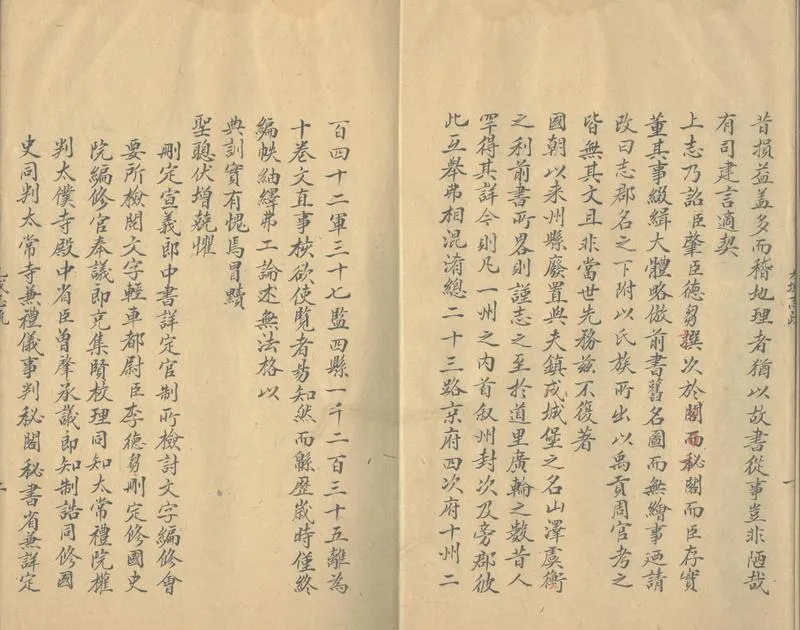 昔損益盖多而稽地理者猶以故書從事豈非陋哉
有司建言適契
上志乃詔臣肇臣德芻撰次於閣而秘閣而臣存實
董其事綴緝大體略倣前書舊名圖而無繪事迺請
改曰志郡名之下附以氏族所出以禹貢周官考之
皆無其文且非當世先務兹不復著
國朝以來州縣廢置與夫鎮戍城堡之名山澤虞衡
之利前書所畧則謹志之至於道里廣輪之数昔人
罕得其詳今則凡一州之内首叙州封次及旁郡彼
此互舉弗相混淆總二十三路京府四次府十州二
百四十二軍三十七監四縣一千二百三十五離為
十卷文直事核欲使覽者易知然而緜歷歲時僅終
編帙紬繹弗工論述無法格以
典訓實有愧焉冒黷
聖聰伏增兢懼
删定宣義郎中書詳定官制所檢討文字編修會
要所檢閱文字輕車都尉臣李德芻刪定修國史
院編修官奉議郎充集賢校理同知太常禮院權
判太僕寺殿中省臣曾肇承議郎知制誥同修國
史同判太常寺兼禮儀事判秘閣秘書省兼詳定